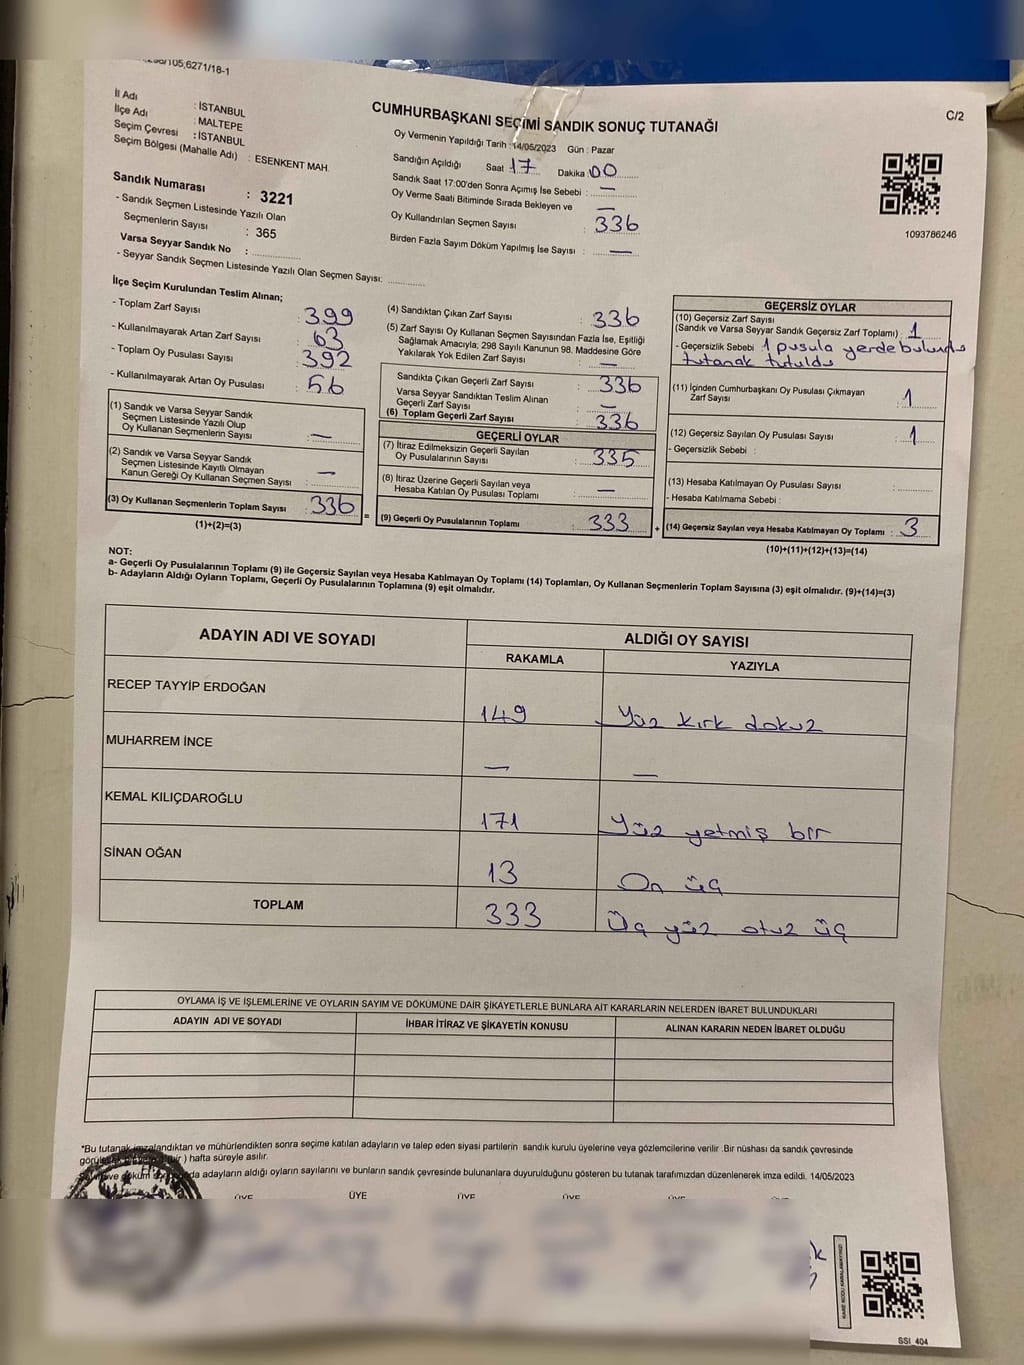 105,6271/18-1
C/2
İl Adı : İSTANBUL
İlçe Adı : MALTEPE
Seçim Çevresi : İSTANBUL
Seçim Bölgesi (Mahalle Adı) : ESENKENT MAH
CUMHURBAŞKANI SEÇİMİ SANDIK SONUÇ TUTANAĞI
Oy Vermenin Yapıldığı Tarih : 14/05/2023 Gün : Pazar
Sandığın Açıldığı Saat 17 Dakika : 00
Sandık Saat 17:00'den Sonra Açımış İse Sebebi : —
Oy Verme Saati Bitiminde Sırada Bekleyen ve —
Oy Kullandırılan Seçmen Sayısı : 336
Birden Fazla Sayım Döküm Yapılmış İse Sayısı : —
1093786246
Sandık Numarası : 3221
- Sandık Seçmen Listesinde Yazılı Olan
Seçmenlerin Sayısı : 365
Varsa Seyyar Sandık No :
- Seyyar Sandık Seçmen Listesinde Yazılı Olan Seçmen Sayısı:
İlçe Seçim Kurulundan Teslim Alınan;
- Toplam Zarf Sayısı : 399
- Kullanılmayarak Artan Zarf Sayısı : 63
- Toplam Oy Pusulası Sayısı : 392
- Kullanılmayarak Artan Oy Pusulası : 56
(1) Sandık ve Varsa Seyyar Sandık
Seçmen Listesinde Yazılı Olup
Oy Kullanan Seçmenlerin Sayısı : —
(2) Sandık ve Varsa Seyyar Sandık
Seçmen Listesinde Kayıtlı Olmayan
Kanun Gereği Oy Kullanan Seçmen Sayısı : —
(3) Oy Kullanan Seçmenlerin Toplam Sayısı : 336
(1)+(2)=(3)
(4) Sandıktan Çıkan Zarf Sayısı : 336
(5) Zarf Sayısı Oy Kullanan Seçmen Sayısından Fazla İse, Eşitliği
Sağlamak Amacıyla; 298 Sayılı Kanunun 98. Maddesine Göre
Yakılarak Yok Edilen Zarf Sayısı : —
Sandıkta Çıkan Geçerli Zarf Sayısı : 336
Varsa Seyyar Sandıktan Teslim Alınan
Geçerli Zarf Sayısı : —
(6) Toplam Geçerli Zarf Sayısı : 336
GEÇERLİ OYLAR
(7) İtiraz Edilmeksizin Geçerli Sayılan
Oy Pusulalarının Sayısı : 335
(8) İtiraz Üzerine Geçerli Sayılan veya
Hesaba Katılan Oy Pusulası Toplamı : —
= (9) Geçerli Oy Pusulalarının Toplamı : 333 +
GEÇERSİZ OYLAR
(10) Geçersiz Zarf Sayısı
(Sandık ve Varsa Seyyar Sandık Geçersiz Zarf Toplamı) : 1
- Geçersizlik Sebebi : 1 pusula yerde bulundu
tutanak tutuldu
(11) İçinden Cumhurbaşkanı Oy Pusulası Çıkmayan
Zarf Sayısı : 1
(12) Geçersiz Sayılan Oy Pusulası Sayısı : 1
- Geçersizlik Sebebi :
(13) Hesaba Katılmayan Oy Pusulası Sayısı :
- Hesaba Katılmama Sebebi :
(14) Geçersiz Sayılan veya Hesaba Katılmayan Oy Toplamı : 3
(10)+(11)+(12)+(13)=(14)
NOT:
a- Geçerli Oy Pusulalarının Toplamı (9) ile Geçersiz Sayılan veya Hesaba Katılmayan Oy Toplamı (14) Toplamları, Oy Kullanan Seçmenlerin Toplam Sayısına (3) eşit olmalıdır. (9)+(14)=(3)
b- Adayların Aldığı Oyların Toplamı, Geçerli Oy Pusulalarının Toplamına (9) eşit olmalıdır.
ADAYIN ADI VE SOYADI ALDIĞI OY SAYISI
RAKAMLA YAZIYLA
RECEP TAYYİP ERDOĞAN 149 Yüz kırk dokuz
MUHARREM İNCE — —
KEMAL KILIÇDAROĞLU 171 Yüz yetmiş bir
SİNAN OĞAN 13 On üç
TOPLAM 333 Üç yüz otuz üç
OYLAMA İŞ VE İŞLEMLERİNE VE OYLARIN SAYIM VE DÖKÜMÜNE DAİR ŞİKAYETLERLE BUNLARA AİT KARARLARIN NELERDEN İBARET BULUNDUKLARI
ADAYIN ADI VE SOYADI İHBAR İTİRAZ VE ŞİKAYETİN KONUSU ALINAN KARARIN NEDEN İBARET OLDUĞU
*Bu tutanak imzalandıktan ve mühürlendikten sonra seçime katılan adayların ve talep eden siyasi partilerin sandık kurulu üyelerine veya gözlemcilerine verilir .Bir nüshası da sandık çevresinde
hafta süreyle asılır.
ve döküm adayların aldığı oyların sayılarını ve bunların sandık çevresinde bulunanlara duyurulduğunu gösteren bu tutanak tarafımızdan düzenlenerek imza edildi. 14/05/2023
ÜYE ÜYE ÜYE ÜYE ÜYE ÜYE
KARE KODU KARALAMAYINIZ!
SSI_404